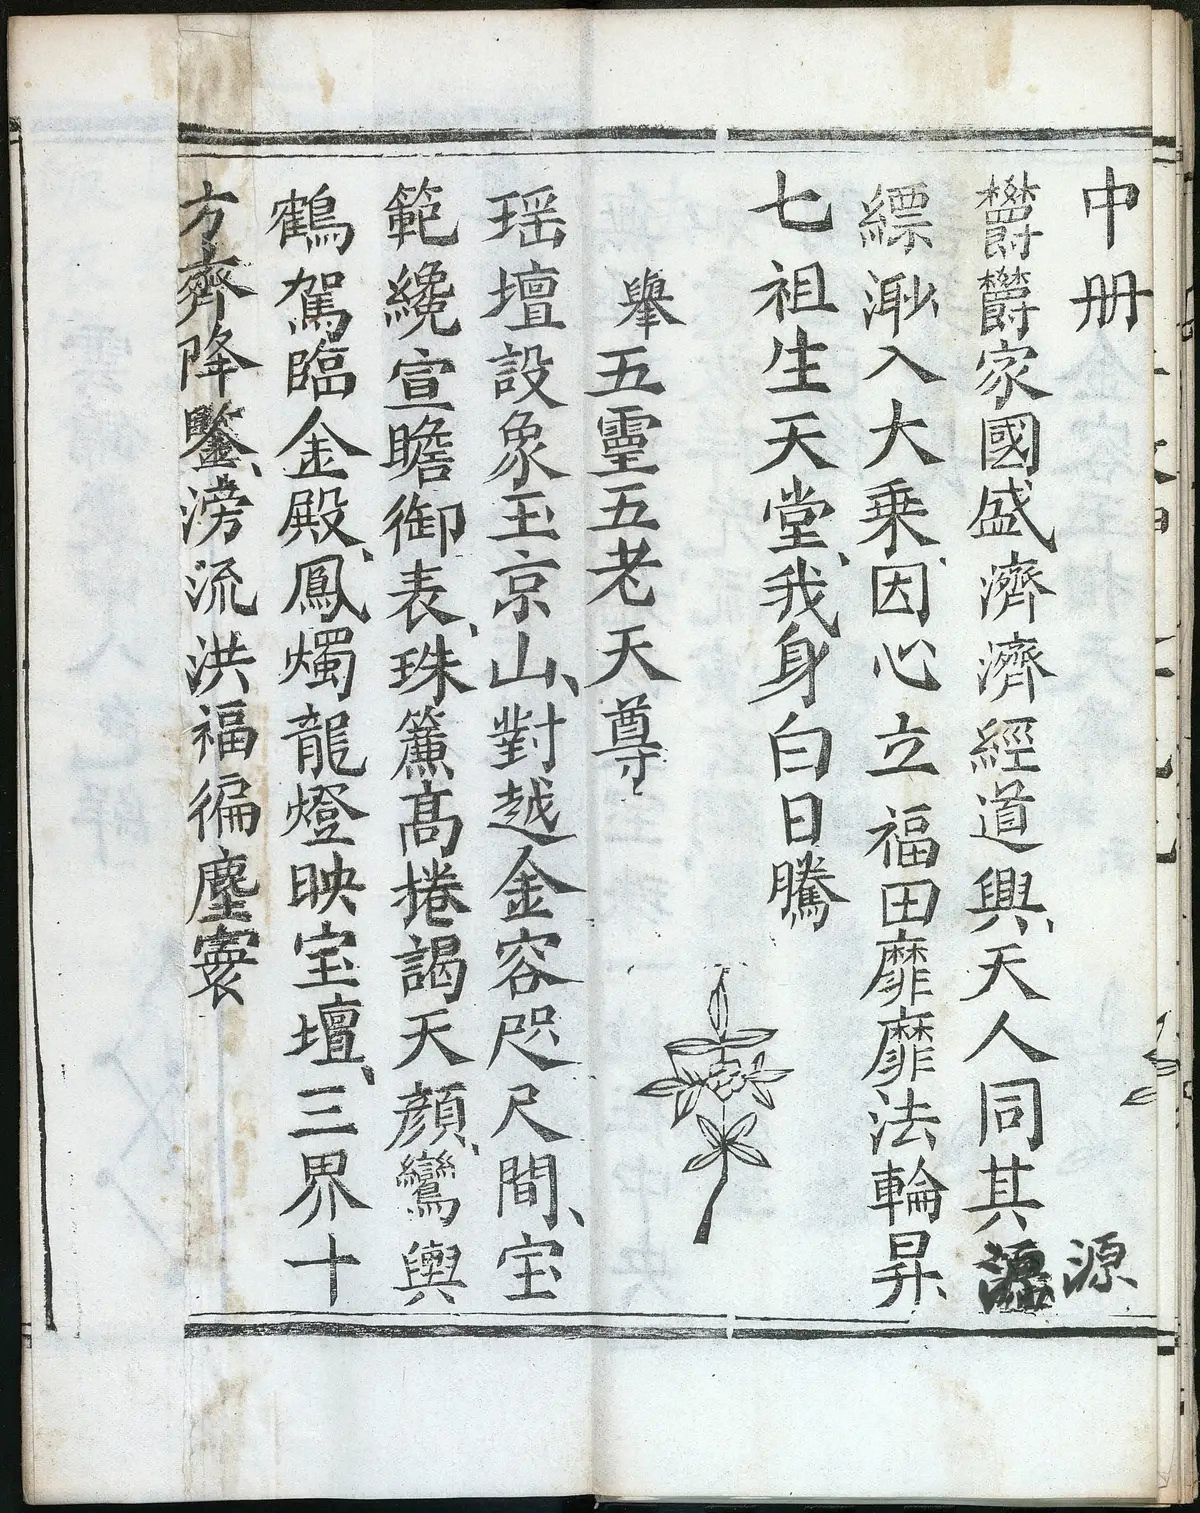 中册
欝欝家國盛濟濟經道興、天人同其源
源
縹緲入大乗、因心立福田靡靡法輪昇、
七祖生天堂、我身白日騰
舉五靈五老天尊
瑶壇設象玉京山、對越金容咫尺間、宝
範纔宣瞻御表、珠簾髙捲謁天顔、鸞輿
鶴駕臨金殿、鳳燭龍燈映宝壇、三界十
方齊降鑒、滂流洪福徧塵寰